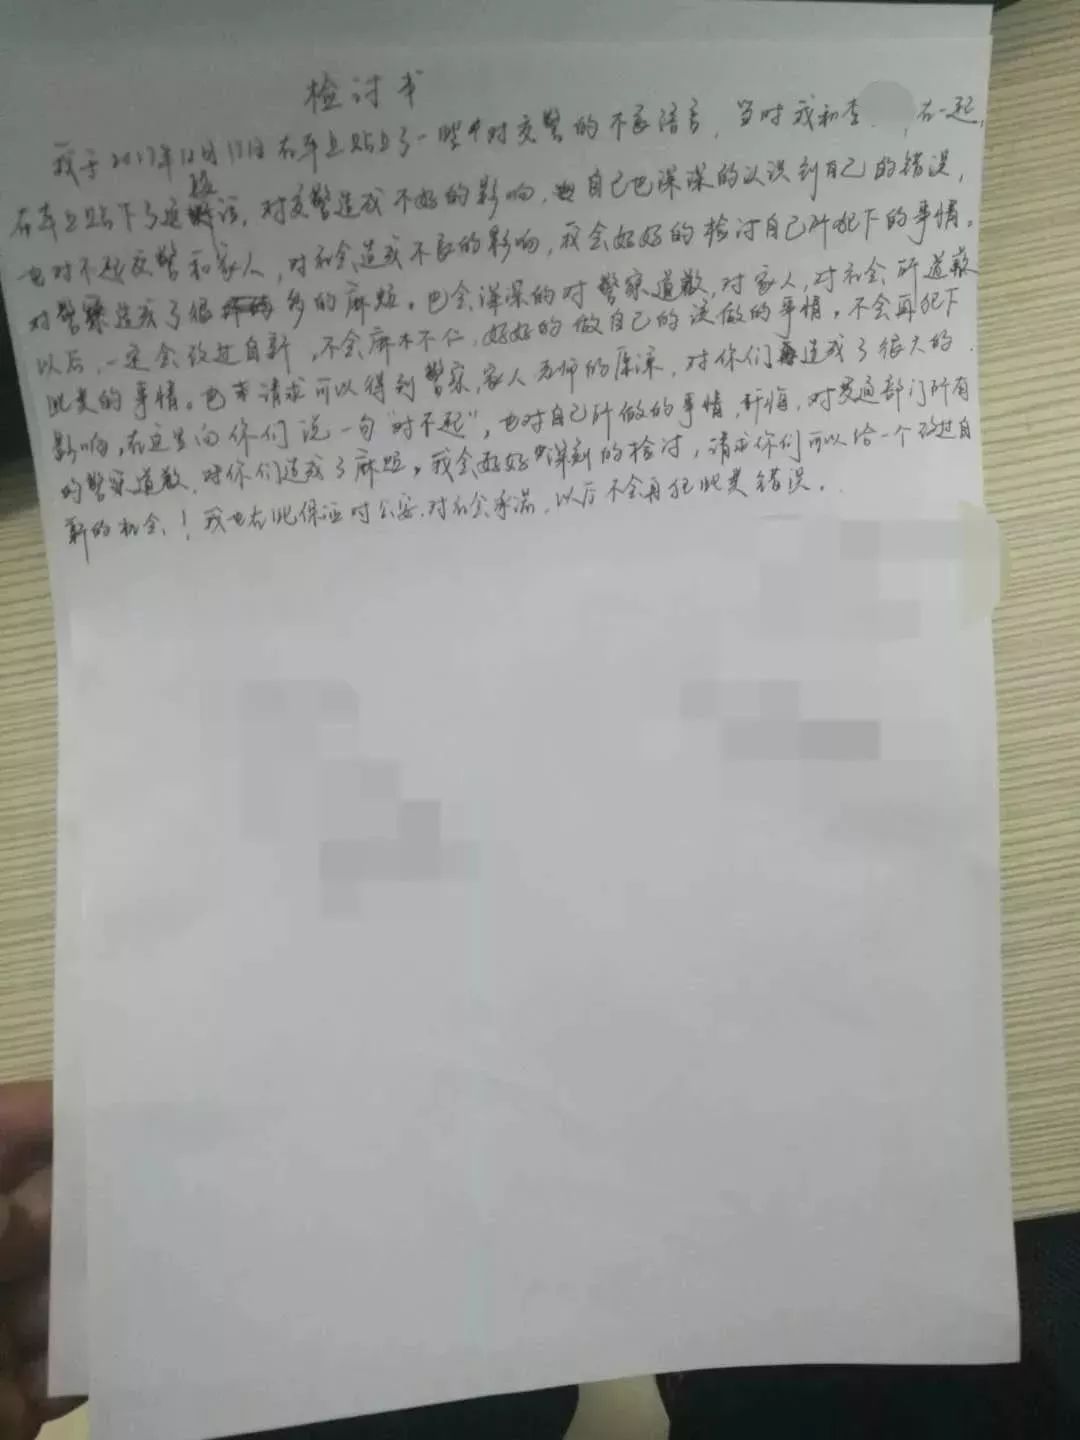 检讨书
我于2017年12月17日在车上贴上了一些对交警的不良语言，当时我和李 ，在一起，
在车上贴下了这段话，对交警造成不好的影响，自己也深深的认识到自己的错误，
也对不起交警和家人，对社会造成不良的影响，我会好好的检讨自己所犯下的事情。
对警察造成了很多的麻烦。也会深深的对警察道歉，对家人，对社会所道歉
以后，一定会改过自新，不会麻木不仁，好好的做自己的该做的事情。不会再犯下
此类的事情。也请求可以得到警察，家人 的原谅，对你们造成了很大的
影响，在这里向你们说一句“对不起”，也对自己所做的事情，忏悔，对交通部门所有
的警察道歉，对你们造成了麻烦。我会好好深刻的检讨，请求你们可以给一个改过自
新的机会！我也在此保证对公安、对社会承诺，以后不会再犯此类错误。